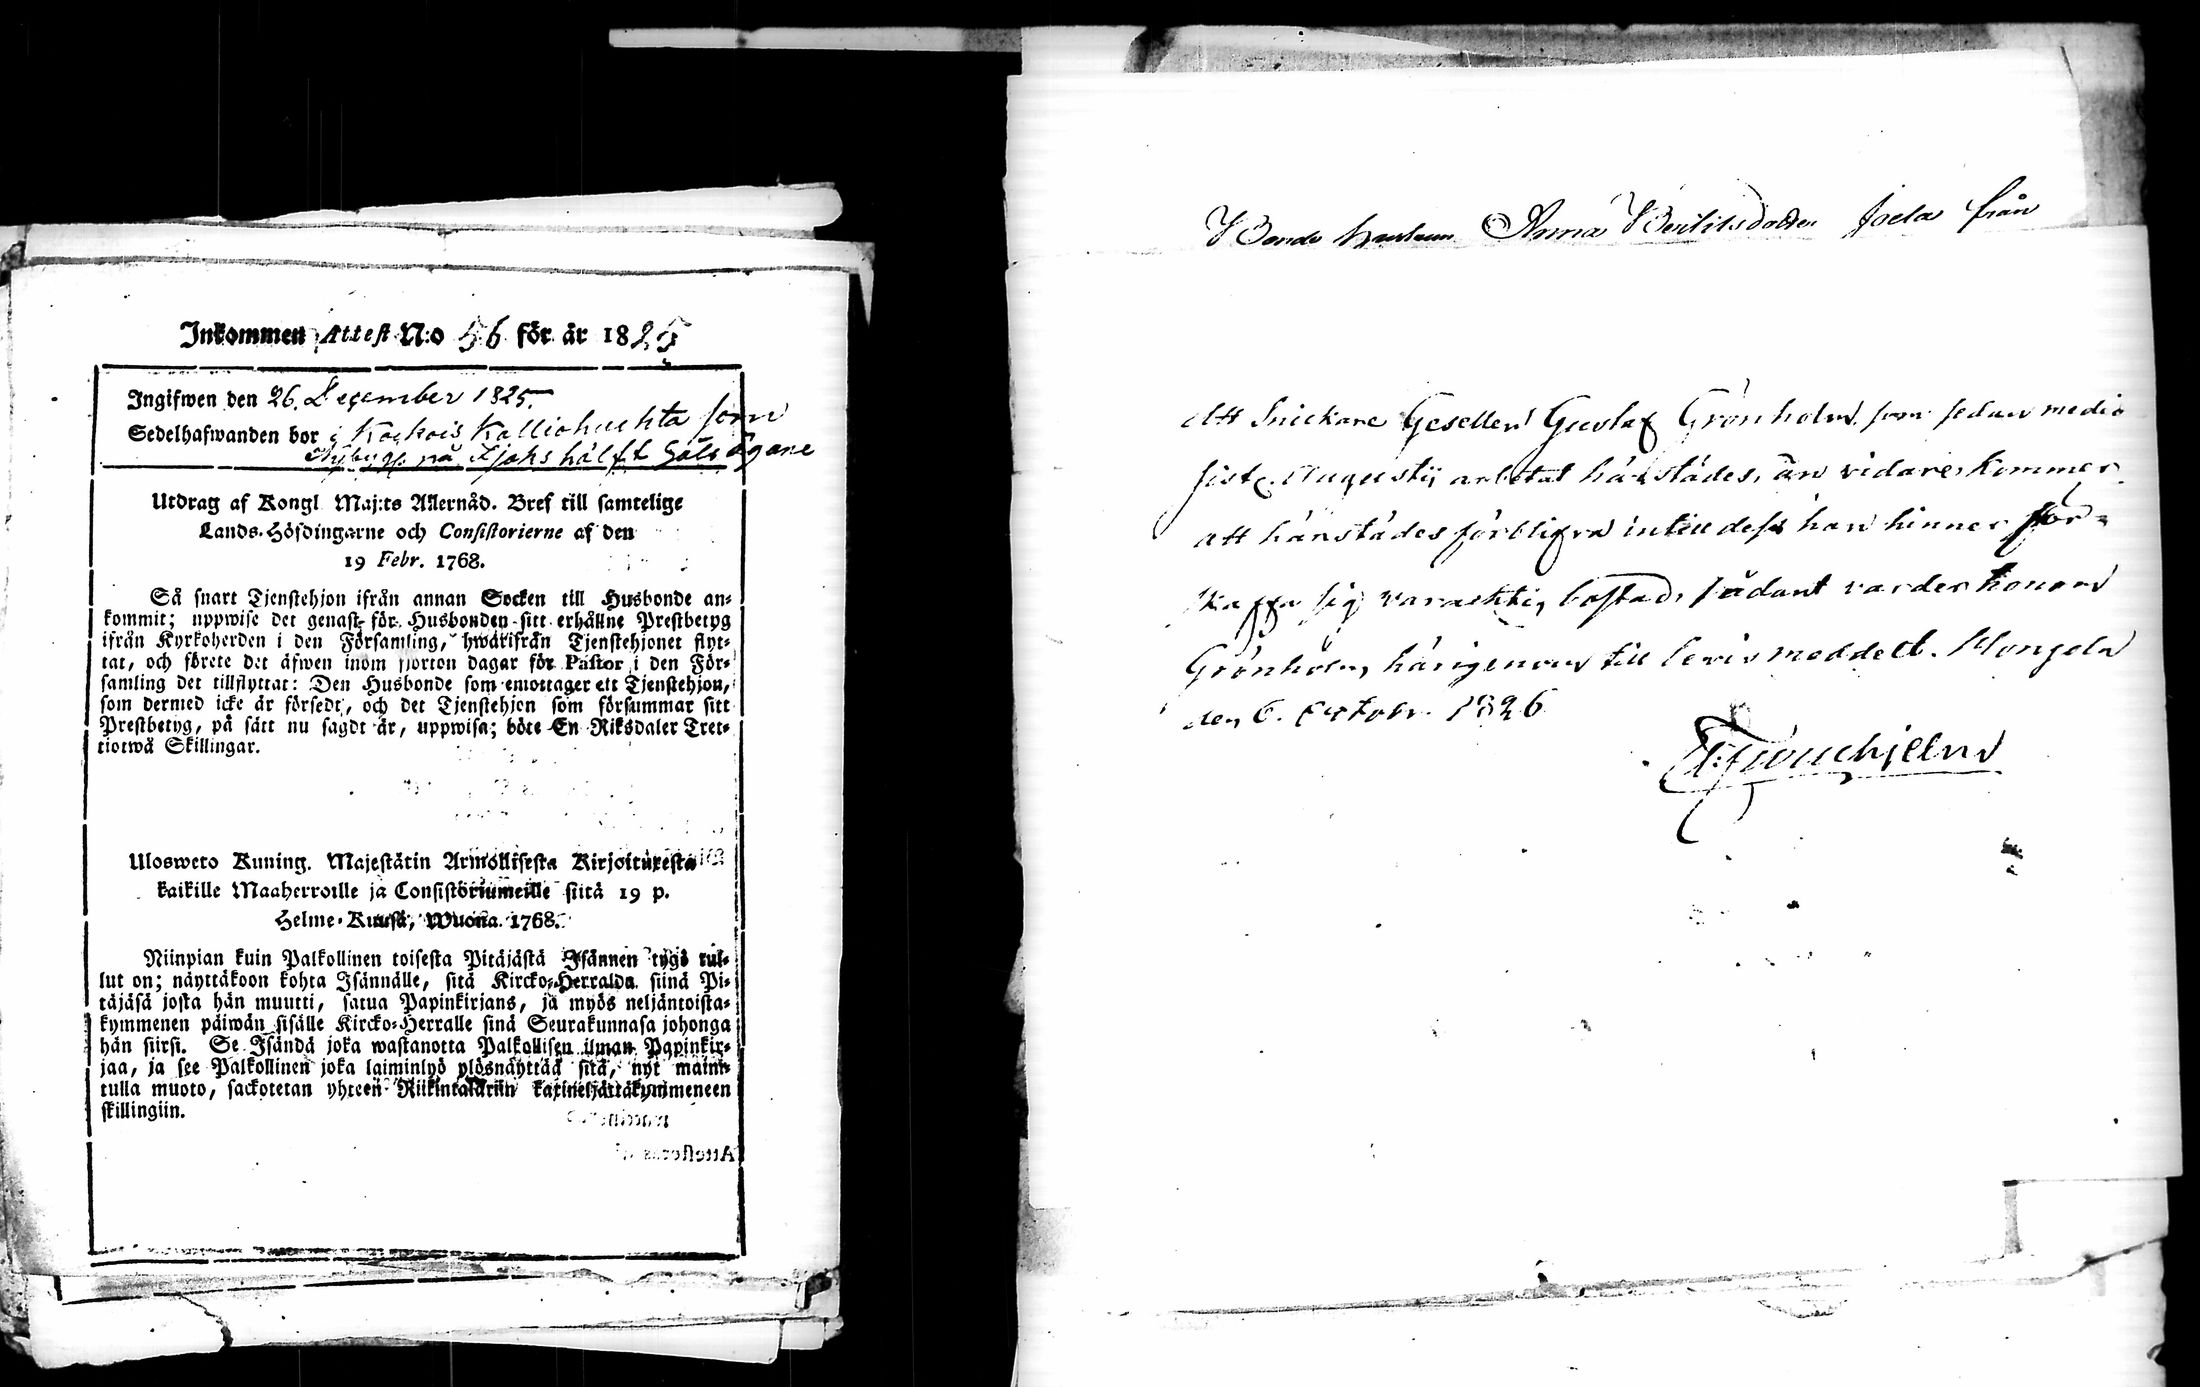 Inkommen Attest N:o 56 för år 1825
Ingifwen den 26. December 1825.
Sedelhafwanden bor i Kockois Kalliohuhta som
på hälft Gäls ägare
Utdrag af Kongl. Maj:ts Allernåd. Bref till samtelige
Lands-Höfdingarne och Consistorierne af den
19 Febr. 1768.
Så snart Tjenstehjon ifrån annan Socken till Husbonde an-
kommit; uppwise det genast för Husbonden sitt erhållne Prestbetyg
ifrån Kyrkoherden i den Församling, hwarifrån Tjenstehjonet flyt-
tat, och förete det äfwen inom fjorton dagar för Pastor i den För-
samling det tillflyttat: Den Husbonde som emottager ett Tjenstehjon,
som dermed icke är försedt, och det Tjenstehjon som försummar sitt
Prestbetyg, på sätt nu sagdt är, uppwisa; böte En Riksdaler Tret-
tiotwå Skillingar.
Ulosweto Kuning. Majestätin Armollisesta Kirjoituxesta
kaikille Maaherroille ja Consistoriumeille siitä 19 p.
Helme-Kuusa, Wuona 1768.
Niinpian kuin Palkollinen toisesta Pitäjästä Isännen tygö tul-
lut on; näyttäkoon kohta Isännälle, sitä Kircko-Herralda siinä Pi-
täjäsä josta hän muutti, satua Papinkirjans, ja myös neljäntoista-
kymmenen päiwän sisälle Kircko-Herralle sinä Seurakunnasa johonga
hän siirsi. Se Isändä joka wastanotta Palkollisen ilman Papinkir-
jaa, ja see Palkollinen joka laiminlyö ylösnäyttää sitä, nyt mainit-
tulla muoto, sackotetan yhteen Riikintaleriin kaxineljättäkymmeneen
skillingiin.
Bonde hustrun Anna Bertilsdotter Joela från
Att Snickare Gesellen Gustaf Grönholm, som sedan medio
sistl. Augustii arbetat härstädes, än vidare kommer
att härstädes förblifva intill dess han hinner för-
skaffa sig varacktig bostad, sådant varder honom
Grönholm, härigenom till bevis meddelt. Mongola
den 6. October 1826